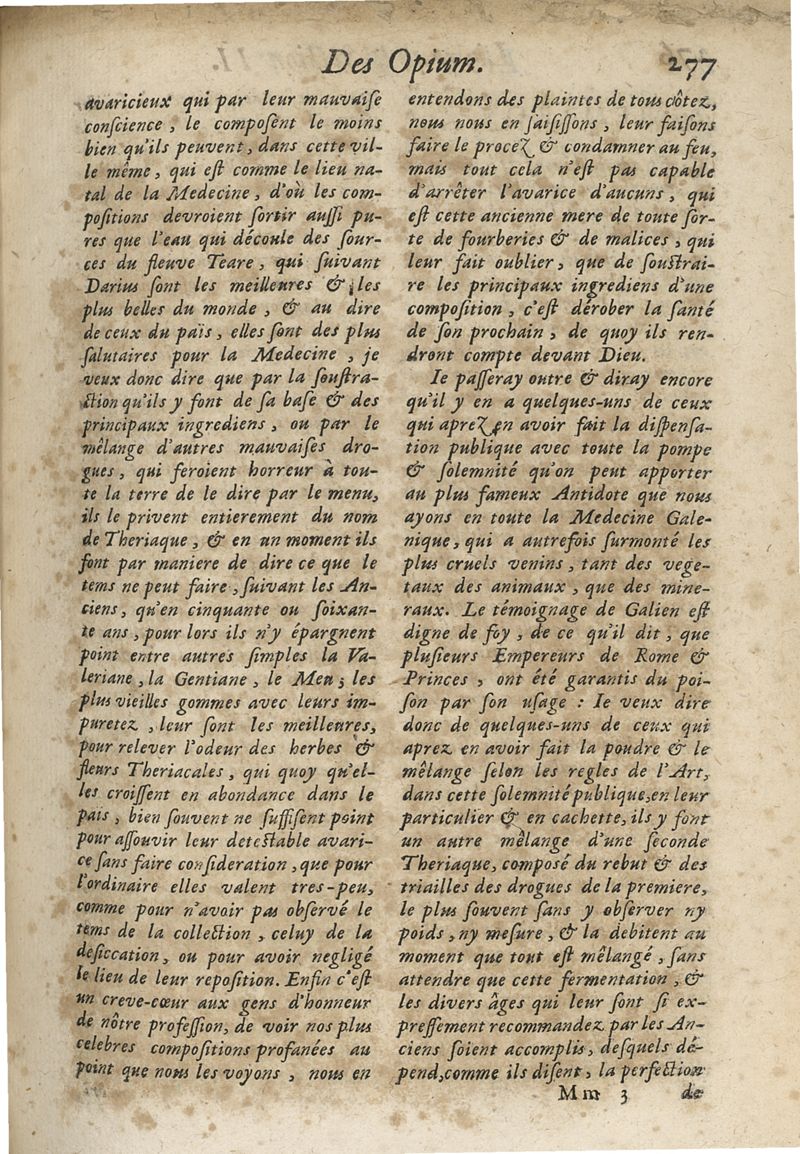 Des Opium. 277
avaricieux qui par leur mauvaiſe
conſcience, le compoſent le moins
bien qu'ils peuvent, dans cette vil-
le même, qui eſt comme le lieu na-
tal de la Medecine, d'où les com-
poſitions devroient ſortir auſſi pu-
res que l'eau qui découle des ſour-
ces du fleuve Teare, qui ſuivant
Darius ſont les meilleures & les
plus belles du monde, & au dire
de ceux du païs, elles ſont des plus
ſalutaires pour la Medecine, je
veux donc dire que par la ſouſtra-
ction qu'ils y font de ſa baſe & des
principaux ingrediens, ou par le
mêlange d'autres mauvaiſes dro-
gues, qui feroient horreur à tou-
te la terre de le dire par le menu,
ils le privent entierement du nom
de Theriaque, & en un moment ils
font par maniere de dire ce que le
tems ne peut faire, ſuivant les An-
ciens, qu'en cinquante ou ſoixan-
te ans, pour lors ils n'y épargnent
point entre autres ſimples la Va-
leriane, la Gentiane, le Meu; les
plus vieilles gommes avec leurs im-
puretez, leur ſont les meilleures,
pour relever l'odeur des herbes &
fleurs Theriacales, qui quoy qu'el-
les croiſſent en abondance dans le
païs, bien ſouvent ne ſuffiſent point
pour aſſouvir leur deteſtable avari-
ce ſans faire conſideration, que pour
l'ordinaire elles valent tres-peu,
comme pour n'avoir pas obſervé le
tems de la collection, celuy de la
deſiccation, ou pour avoir negligé
le lieu de leur repoſition. Enfin c'eſt
un creve-cœur aux gens d'honneur
de nôtre profeſſion, de voir nos plus
celebres compoſitions profanées au
point que nous les voyons, nous en
entendons des plaintes de tous côtez,
nous nous en ſaiſiſſons, leur faiſons
faire le procez & condamner au feu,
mais tout cela n'eſt pas capable
d'arrêter l'avarice d'aucuns, qui
eſt cette ancienne mere de toute ſor-
te de fourberies & de malices, qui
leur fait oublier, que de ſouſtrai-
re les principaux ingrediens d'une
compoſition, c'eſt dérober la ſanté
de ſon prochain, de quoy ils ren-
dront compte devant Dieu.
Ie paſſeray outre & diray encore
qu'il y en a quelques-uns de ceux
qui aprez en avoir fait la diſpenſa-
tion publique avec toute la pompe
& ſolemnité qu'on peut apporter
au plus fameux Antidote que nous
ayons en toute la Medecine Gale-
nique, qui a autrefois ſurmonté les
plus cruels venins, tant des vege-
taux des animaux, que des mine-
raux. Le témoignage de Galien eſt
digne de foy, de ce qu'il dit, que
pluſieurs Empereurs de Rome &
Princes, ont été garantis du poi-
ſon par ſon uſage : Ie veux dire
donc de quelques-uns de ceux qui
aprez en avoir fait la poudre & le
mêlange ſelon les regles de l'Art,
dans cette ſolemnité publique, en leur
particulier & en cachette, ils y font
un autre mêlange d'une ſeconde
Theriaque, compoſé du rebut & des
triailles des drogues de la premiere,
le plus ſouvent ſans y obſerver ny
poids, ny meſure, & la debitent au
moment que tout eſt mêlangé, ſans
attendre que cette fermentation, &
les divers âges qui leur ſont ſi ex-
preſſement recommandez par les An-
ciens ſoient accomplis, deſquels dé-
pend, comme ils diſent, la perfection
Mm 3 de